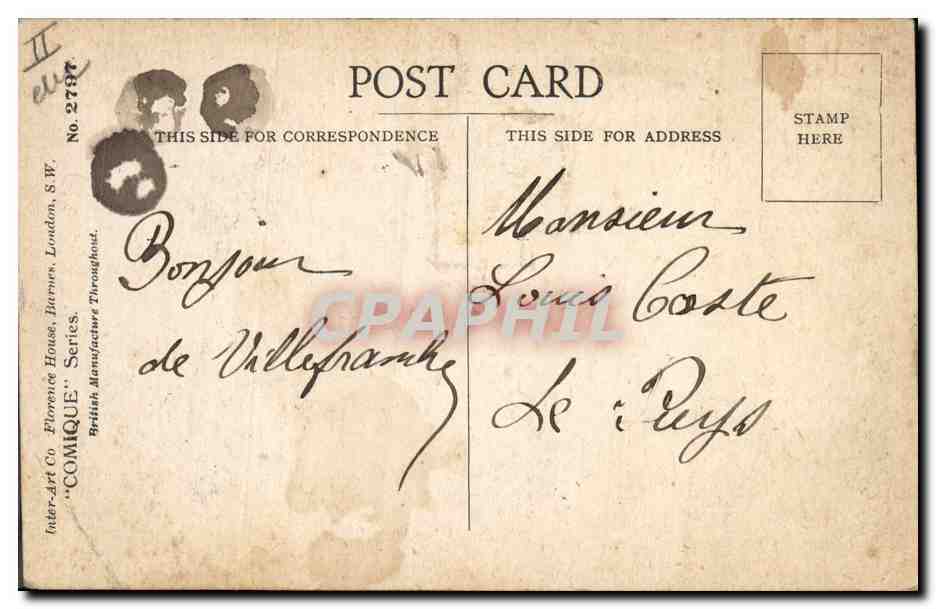 II
POST CARD
THIS SIDE FOR CORRESPONDENCE
THIS SIDE FOR ADDRESS
STAMP
HERE
No. 2797.
Inter-Art Co Florence House, Barnes, London, S.W.
"COMIQUE" Series.
British Manufacture Throughout.
Bonjour
de Villefranche
Monsieur
Louis Coste
Le Puys
CPAPHIL